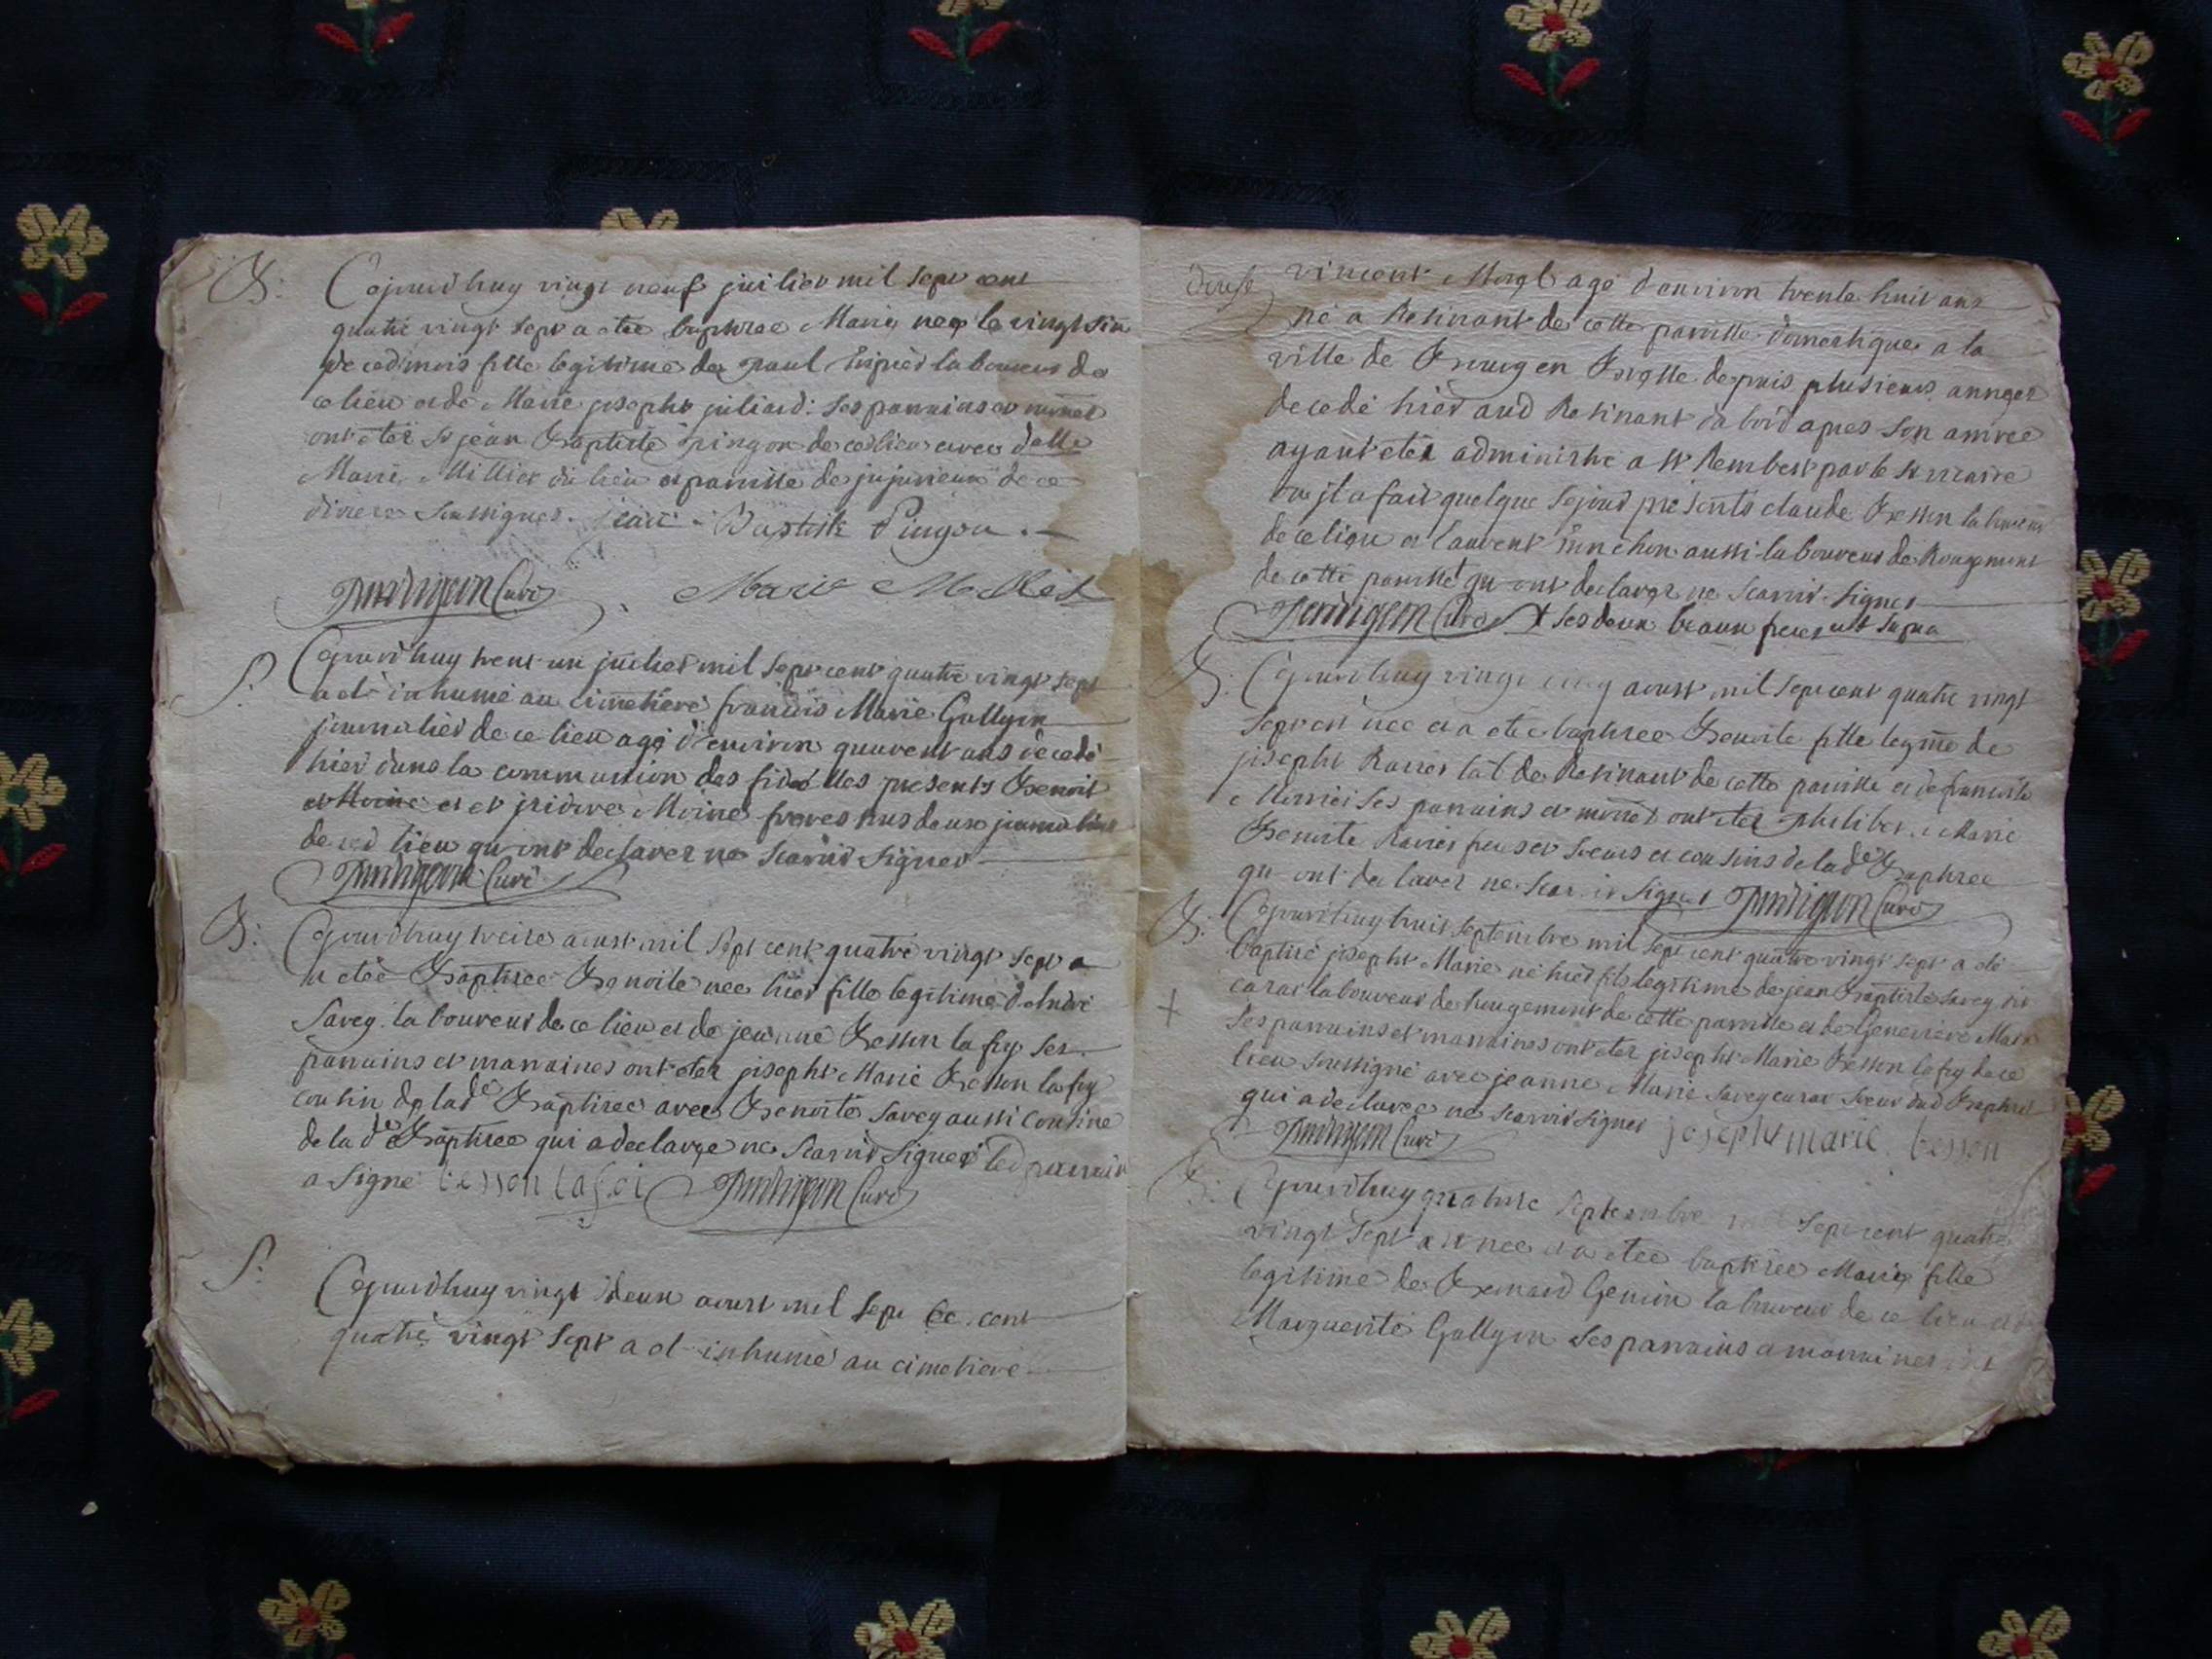 B: Cejourdhuy vingt neuf juilier mil sept cent
quatre vingt sept a etée baptisée Marie neé le vingt six
de ced mois fille legitime de paul laboureur de
ce lieu et de Marie josephe juliard: ses parrains et
ont étéz sr jean Baptiste pingon de ced lieu avec dlle
Marie Millier du lieu et paroisse de jujurieux de ce
soussignes. jean Baptiste Pingon.
Curé Marie Mellier
S: Cejourdhuy trent un juilier mil sept cent quatre vingt sept
a eté inhumé au cimetiere francois Marie Gallyon
journalier de ce lieu agé d'environ quarent ans decedé
hier dans la communion des fidelles presents Benoit
et Moine et et jsidore Moine freres tous deux journaliers
de ced lieu qu'ont declarez ne scavoir signer
Curé
B: Cejourdhuy treize aoust mil sept cent quatre vingt sept a
a etée Baptisée Benoite née hier fille legitime d'André
Savey laboureur de ce lieu et de jeanne Besson lafoy ses
parrains et marraines ont étez joseph Marie Besson lafoy
cousin de lade Baptisée avec Benoite Savey aussi cousine
de lade Baptisée qui a declaré ne scavoir signer led parrain
a signé besson lafoi Curé
S: Cejourdhuy vingt deux aoust mil sept cent
quatre vingt sept a eté inhumé au cimetiere
vincent Morel agé d'environ trente huit ans
né a Resinant de cette paroisse domestique a la
ville de Bourg en Bresse depuis plusieurs années
decedé hier aud Resinant d'abord apres son arrivée
ayant etéz administré a st Rembert par le sr vicaire
ou jl a fait quelque sejour presents claude Besson laboureur
de ce lieu et laurent aussi laboureur de Rougemont
de cette paroisse qu'ont declarez ne scavoir signer
Curé + ses deux beaux freres ut supra
B: Cejourdhuy vingt cinq aoust mil sept cent quatre vingt
sept est née et a etée baptisée Benoite fille legme de
joseph Ravier de Resinant de cette paroisse et de francoise
ses parrains et ont étez philibert Marie
Benoite Ravier freres et soeurs et cousins de lade Baptisée
qu'ont declarez ne scavoir signer Curé
B: Cejourdhuy huit septembre mil sept cent quatre vingt sept a eté
baptisé joseph Marie né hier fils legitime de jean Baptiste Savey dit
caraz laboureur de rougemont de cette paroisse et de Genevieve
+ ses parrains et marraines ont étez joseph Marie Besson lafoy de ce
lieu soussigné avec jeanne Marie Savey caraz soeur dud Baptisé
qui a declarée ne scavoir signer joseph marie besson
Curé
B: Cejourdhuy quatorse septembre mil sept cent quatre
vingt sept est née et a etée baptisée Marie fille
legitime de Bernard Genin laboureur de ce lieu et de
Marguerite Gallyon ses parrains et marraines ont